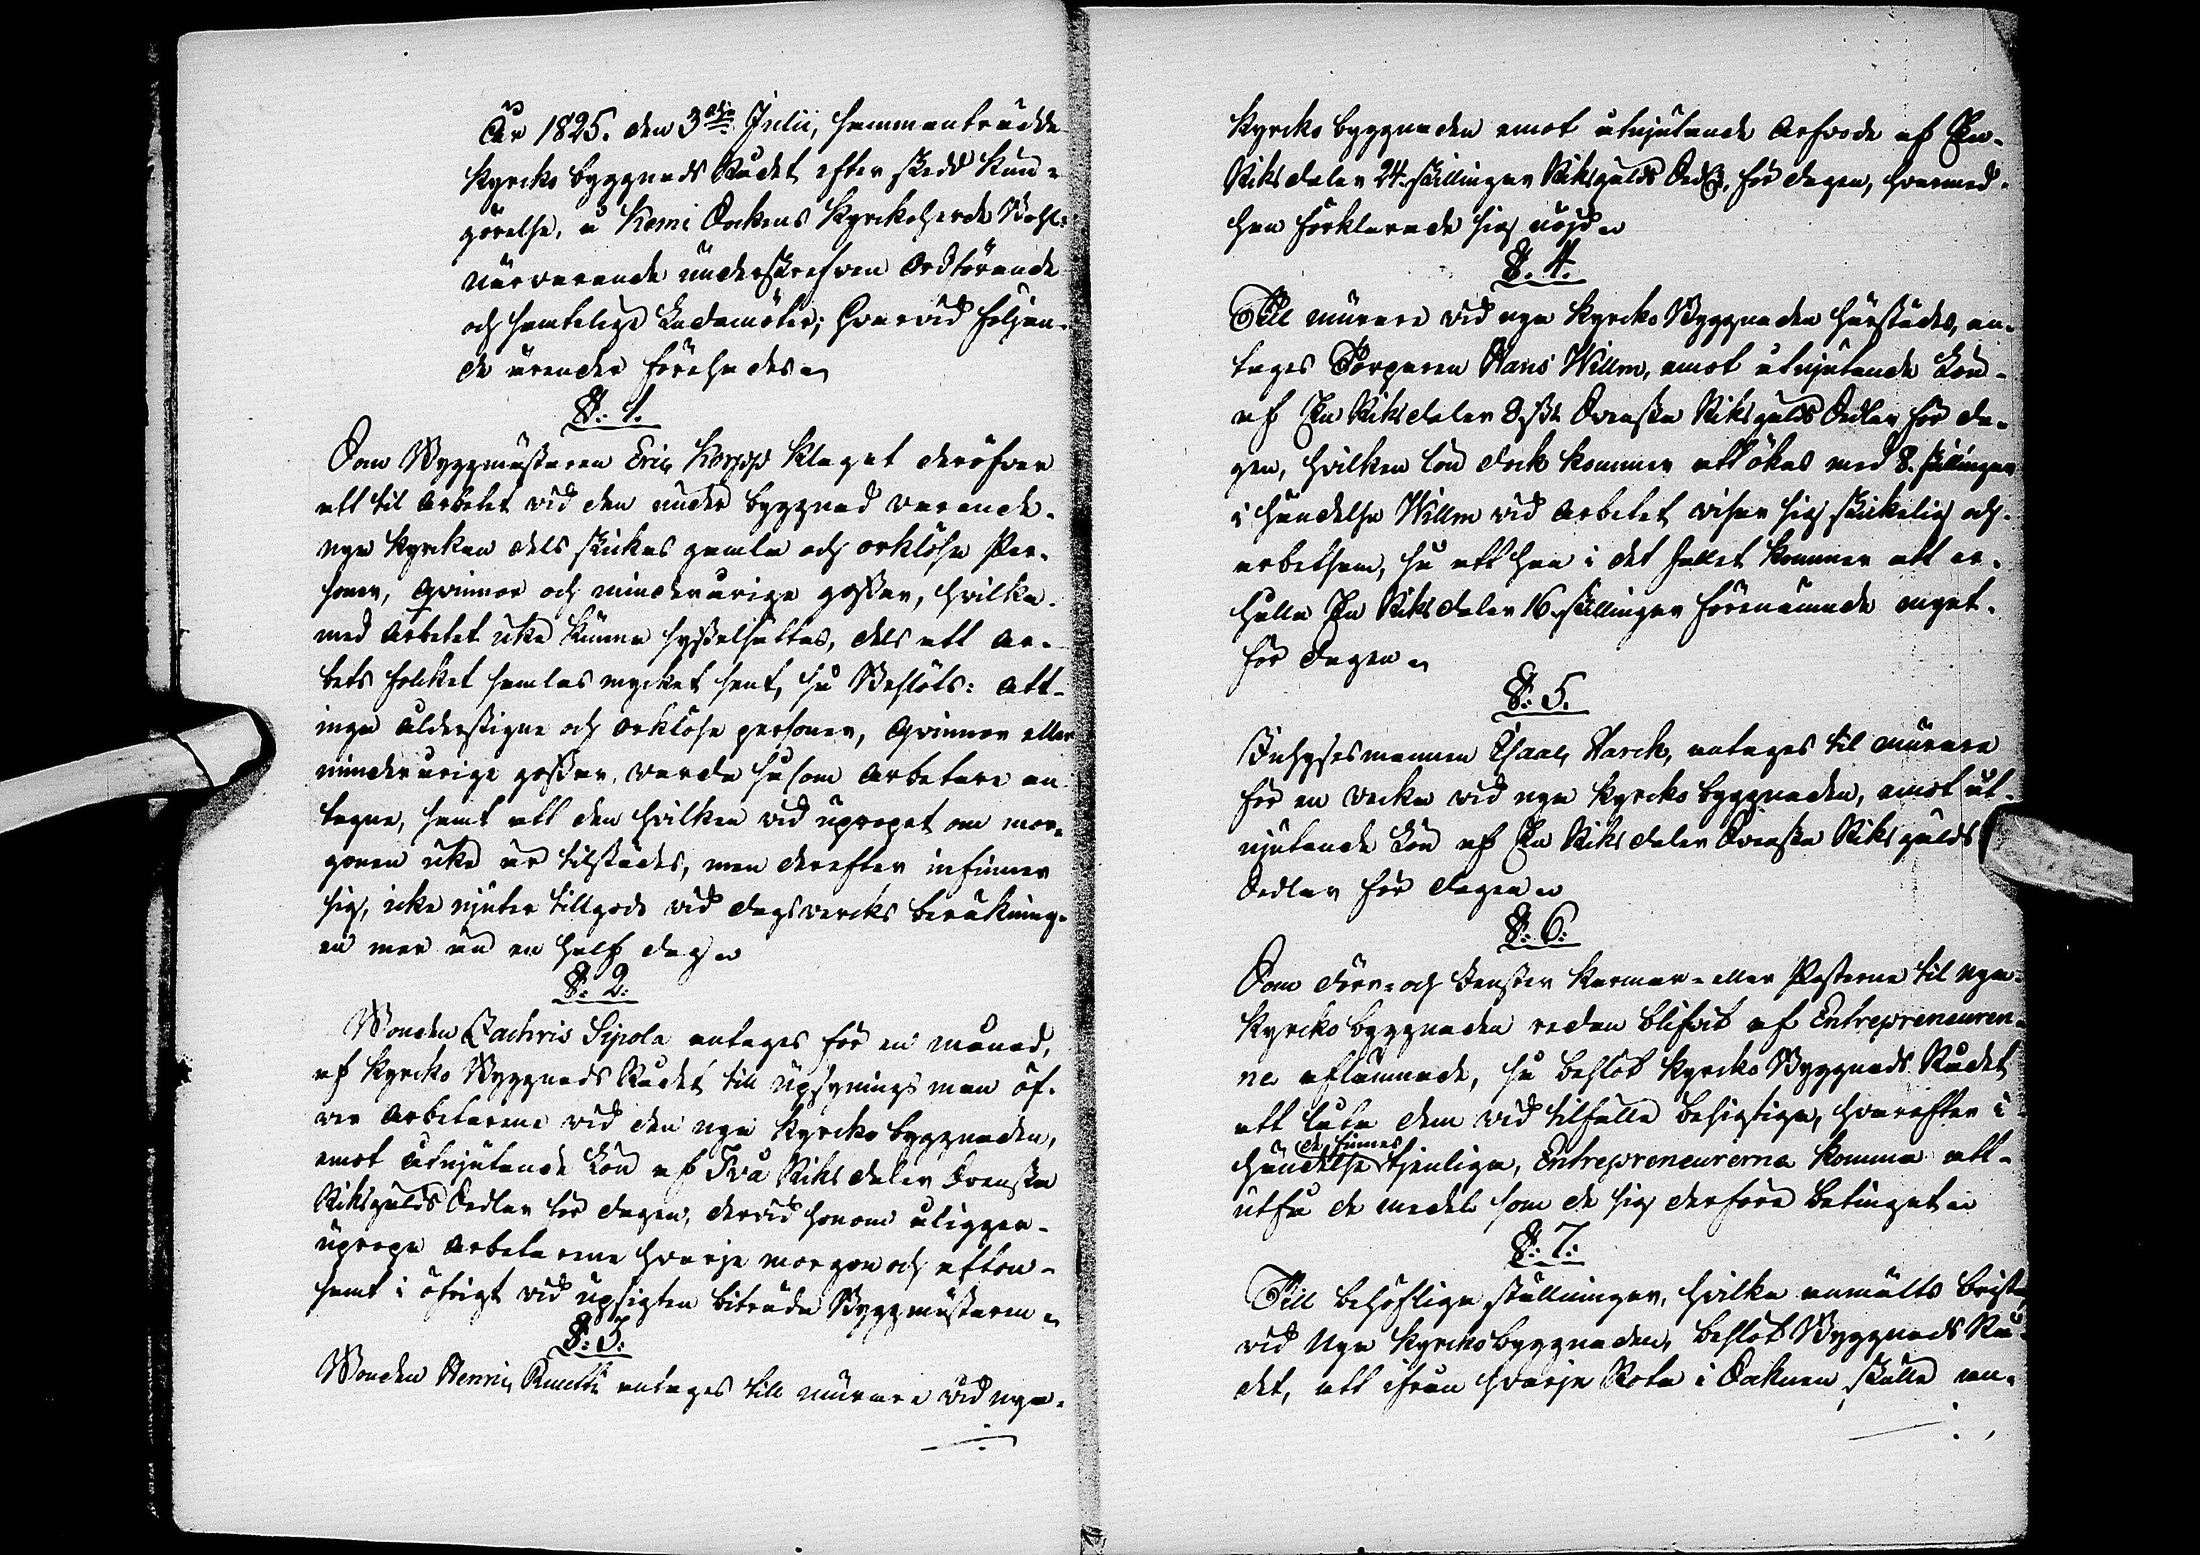 År 1825. den 3dje Julii, sammanträdde
Kyrko byggnads Rådet efter skedd kun-
görelse, i Kemi Sockens Kyrkoherde Bohl-
närvarande underskrefven Ordförande
och samtelige Ledamöter; hvarvid följan-
de ärender förehades.
§: 1.
Som Byggmästaren Eric Korpp klagat deröfver
att til arbetet vid den under byggnad varande
nya Kyrkan dels skickas gamla och orklösa Per-
soner, qvinnor och minderårige gossar, hvilka
med arbetet icke kunna sysselsättas, dels att ar-
bets folket samlas mycket sent, så Beslöts: att
inga ålderstigne och orklöse personer, qvinnor eller
minderårige gossar, varda såsom arbetare an-
tagne, samt att den hvilken vid upropet om mor-
gonen icke är tilstädes, men derefter infinner
sig, icke njuter tillgodo vid dagsvercks beräkning-
en mer än en half dag.
§: 2:
Bonden Zachris Sipola antages för en månad,
af Kyrko Byggnads Rådet till upsynings man öf-
ver arbetarena vid den nya Kyrko byggnaden,
emot åtnjutande Lön af Två Riksdaler Svenska
Riksgälds Sedlar för dagen, dervid honom åligger
upropa arbetarene hvarje morgon och afton
samt i öfrigt vid upsigten biträda Byggmästaren.
§: 3:
Bonden Henric Ruutti antages till murare vid nya
Kyrko byggnaden emot åtnjutande Arfvode af En
Riksdaler 24. skillingar Riksgälds Sedl. för dagen, hvarmed
han förklarade sig nöjd.
§. 4.
Till murare vid nya Kyrko Byggnaden härstädes, an-
tages Torparen Hans Willm, emot åtnjutande Lön
af En Riksdaler 8 sk: Svenska Riksgälds Sedlar för da-
gen, hvilken lön dock kommer att ökas med 8. skillingar
i händelse Willm vid arbetet visar sig skickelig och
arbetsam, så att han i det fallet kommer att er-
hålla En Riksdaler 16. skillingar förenämnde mynt
för dagen.
§: 5.
Inhysesmannen Esaac Harck, antages til murare
för en vecka vid nya Kyrko byggnaden, emot åt-
njutande Lön af En Riksdaler Svenska Riksgälds
Sedlar för dagen.
§: 6:
Som dörr- och Fenster Karmar- eller Posterne til nya
Kyrko byggnaden redan blifvit af Entrepreneuren-
ne aflämnade, så beslöt Kyrko Byggnads Rådet
att låta dem vid tilfälle besigtiga, hvarefter i
händelse de finnas tjenliga, Entrepreneurerna komma att
utfå de medel som de sig derföre betingat.
§: 7:
Till behöflige ställningar, hvilka anmälts brista
vid nya Kyrkobyggnaden, beslöt Byggnads Rå-
det, att ifrån hvarje Rota i Socknen skulle an-